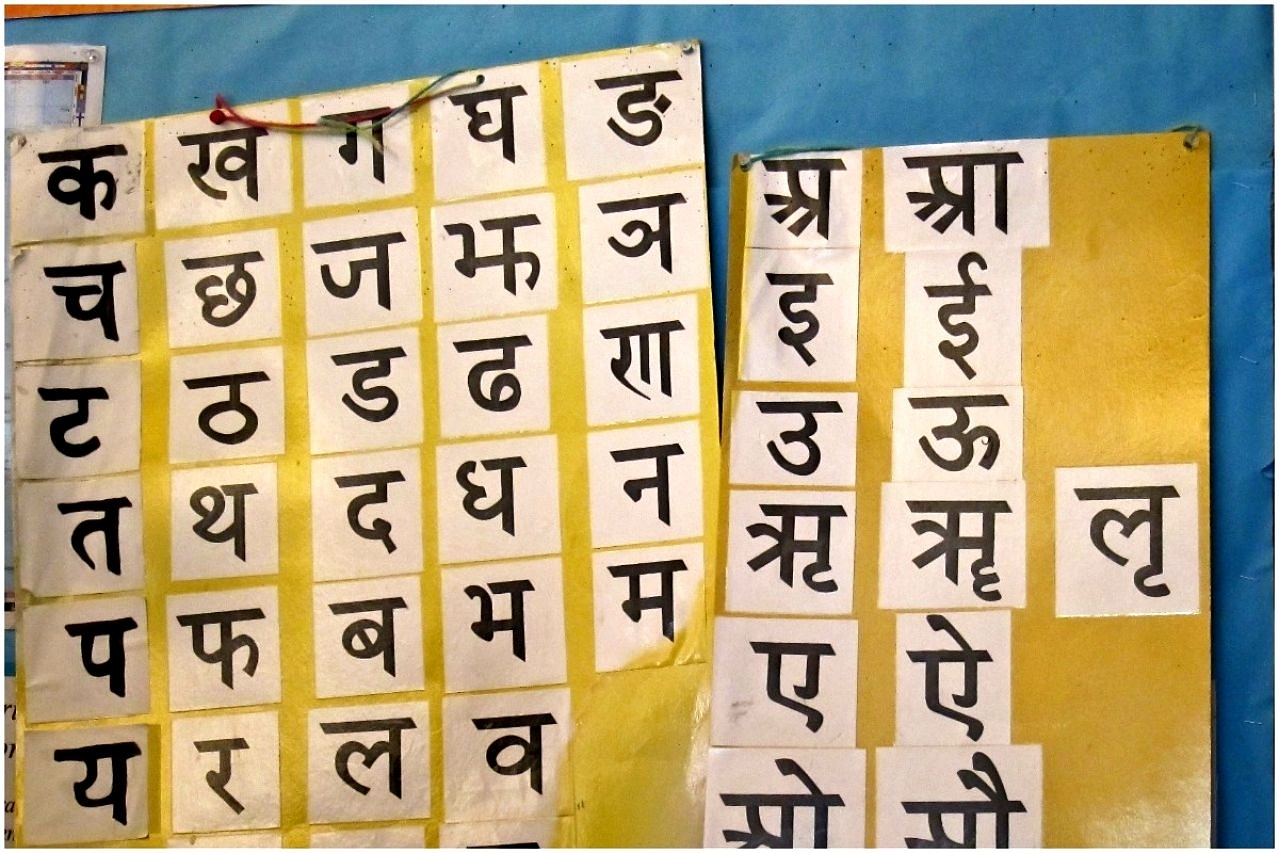 क ख ग घ ङ
च छ ज झ ञ
ट ठ ड ढ ण
त थ द ध न
प फ ब भ म
य र ल व
अ आ
इ ई
उ ऊ
ऋ ॠ ऌ
ए ऐ
ओ औ